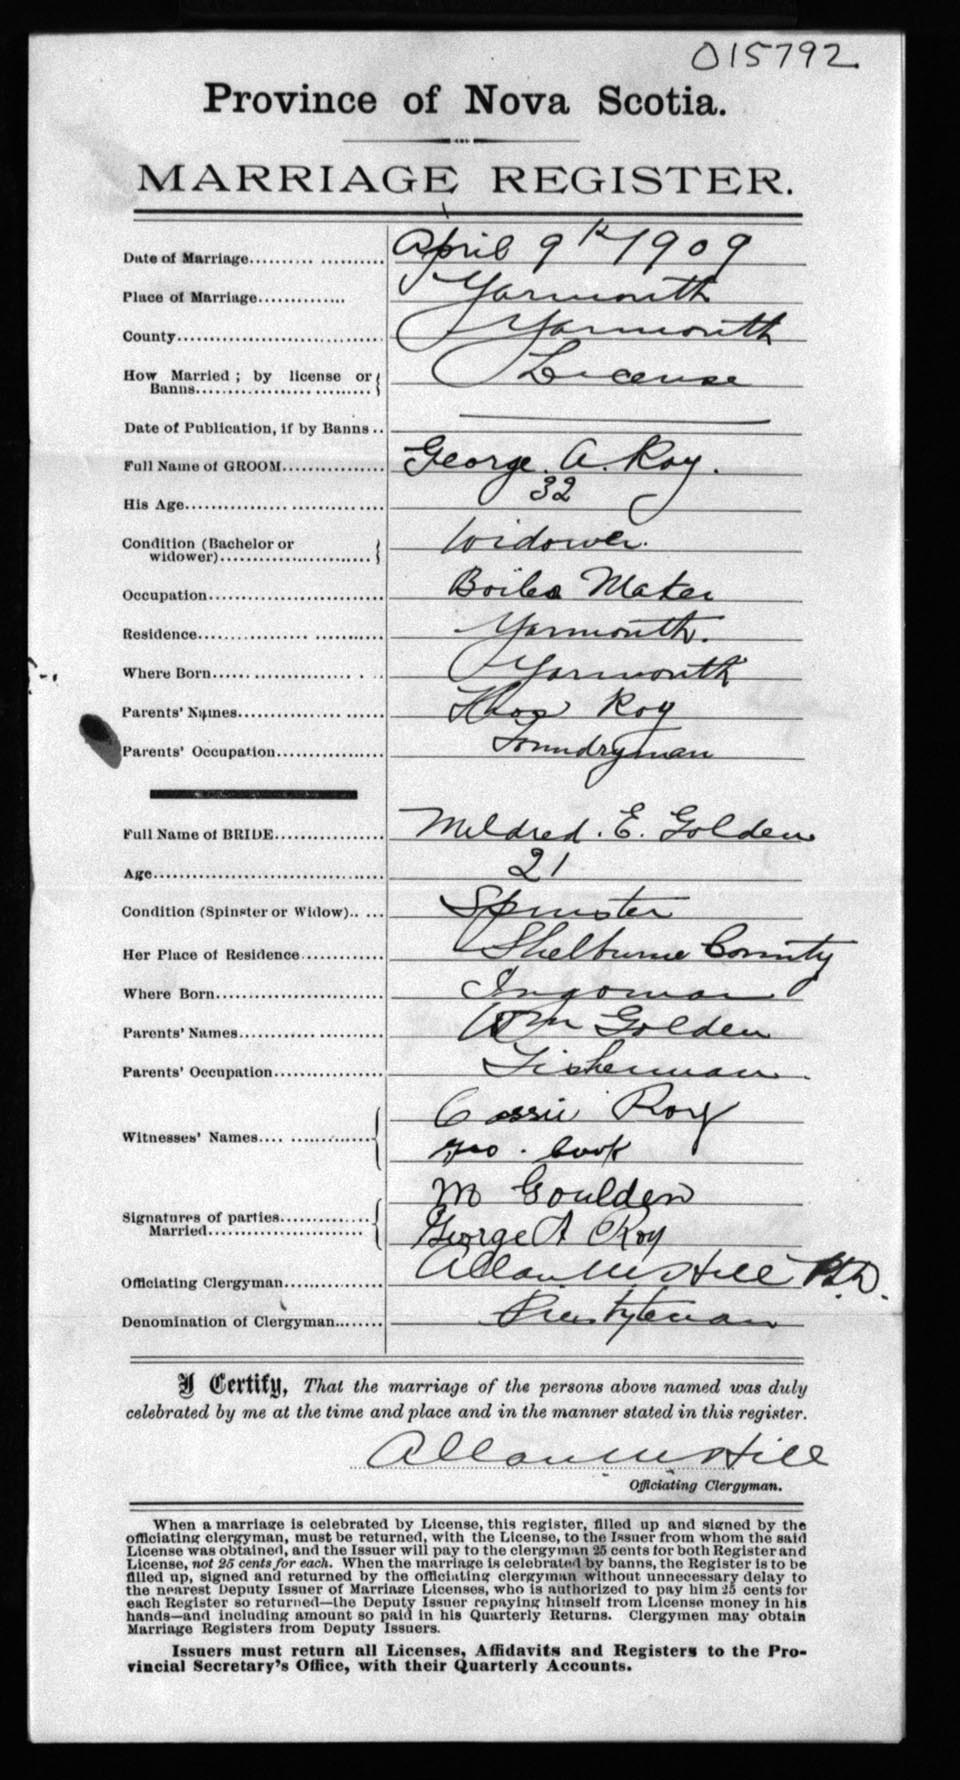 015792
Province of Nova Scotia.
MARRIAGE REGISTER.
Date of Marriage.......... .......... April 9th 1909
Place of Marriage.............. Yarmouth
County................................ Yarmouth
How Married ; by license or
Banns.................. ......... License
Date of Publication, if by Banns ..
Full Name of GROOM............... George. A. Roy.
His Age................. .............. 32
Condition (Bachelor or
widower)........................ Widower.
Occupation........................... Boiler Maker
Residence............... ............ Yarmouth.
Where Born...... ................ . . Yarmouth
Parents' Names............... ....... Thos Roy
Parents' Occupation................ Foundryman
Full Name of BRIDE................ Mildred. E. Golden
Age.................................... 21
Condition (Spinster or Widow).. .... Spinster
Her Place of Residence............. Shelburne County
Where Born.......................... Ingomar
Parents' Names............ .......... Wm Golden
Parents' Occupation................ Fisherman.
Witnesses' Names.... .............. Cassie Roy
Geo. Cook
Signatures of parties............. M Goulden
Married........................ George A Roy
Officiating Clergyman............... Allan M Hill Ph.D.
Denomination of Clergyman........ Presbyterian
I Certify, That the marriage of the persons above named was duly
celebrated by me at the time and place and in the manner stated in this register.
Allan M Hill
Officiating Clergyman.
When a marriage is celebrated by License, this register, filled up and signed by the
officiating clergyman, must be returned, with the License, to the Issuer from whom the said
License was obtained, and the Issuer will pay to the clergyman 25 cents for both Register and
License, not 25 cents for each. When the marriage is celebrated by banns, the Register is to be
filled up, signed and returned by the officiating clergyman without unnecessary delay to
the nearest Deputy Issuer of Marriage Licenses, who is authorized to pay him 25 cents for
each Register so returned—the Deputy Issuer repaying himself from License money in his
hands—and including amount so paid in his Quarterly Returns. Clergymen may obtain
Marriage Registers from Deputy Issuers.
Issuers must return all Licenses, Affidavits and Registers to the Pro-
vincial Secretary's Office, with their Quarterly Accounts.